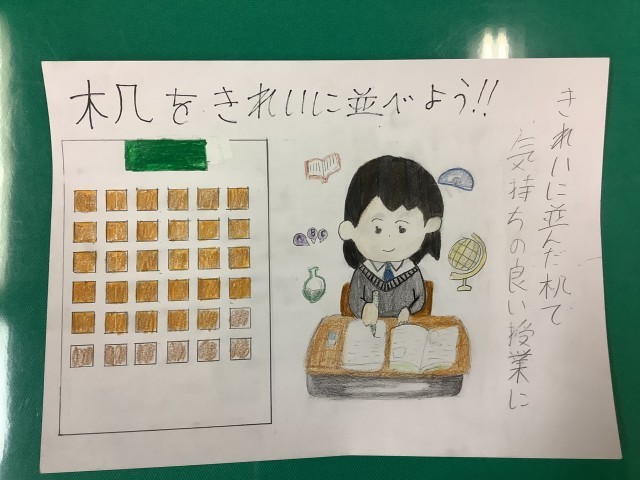 机をきれいに並べよう!!
きれいに並んだ机で
気持ちの良い授業に